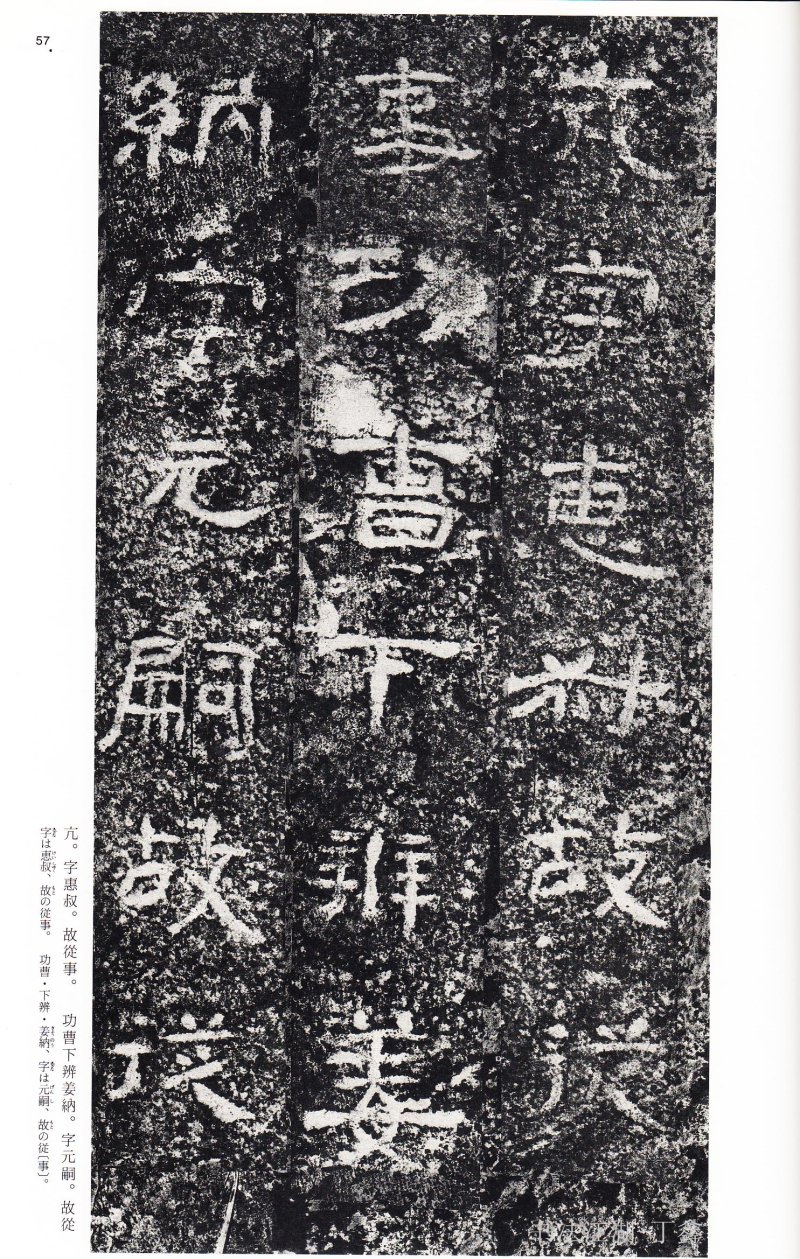 57
亢字惠叔故從
事功曹下辨姜
納字元嗣故從
亢。字惠叔。故從事。 功曹下辨姜納。字元嗣。故從
字は惠叔、故の従事。 功曹・下辨・姜納、字は元嗣、故の従〔事〕。